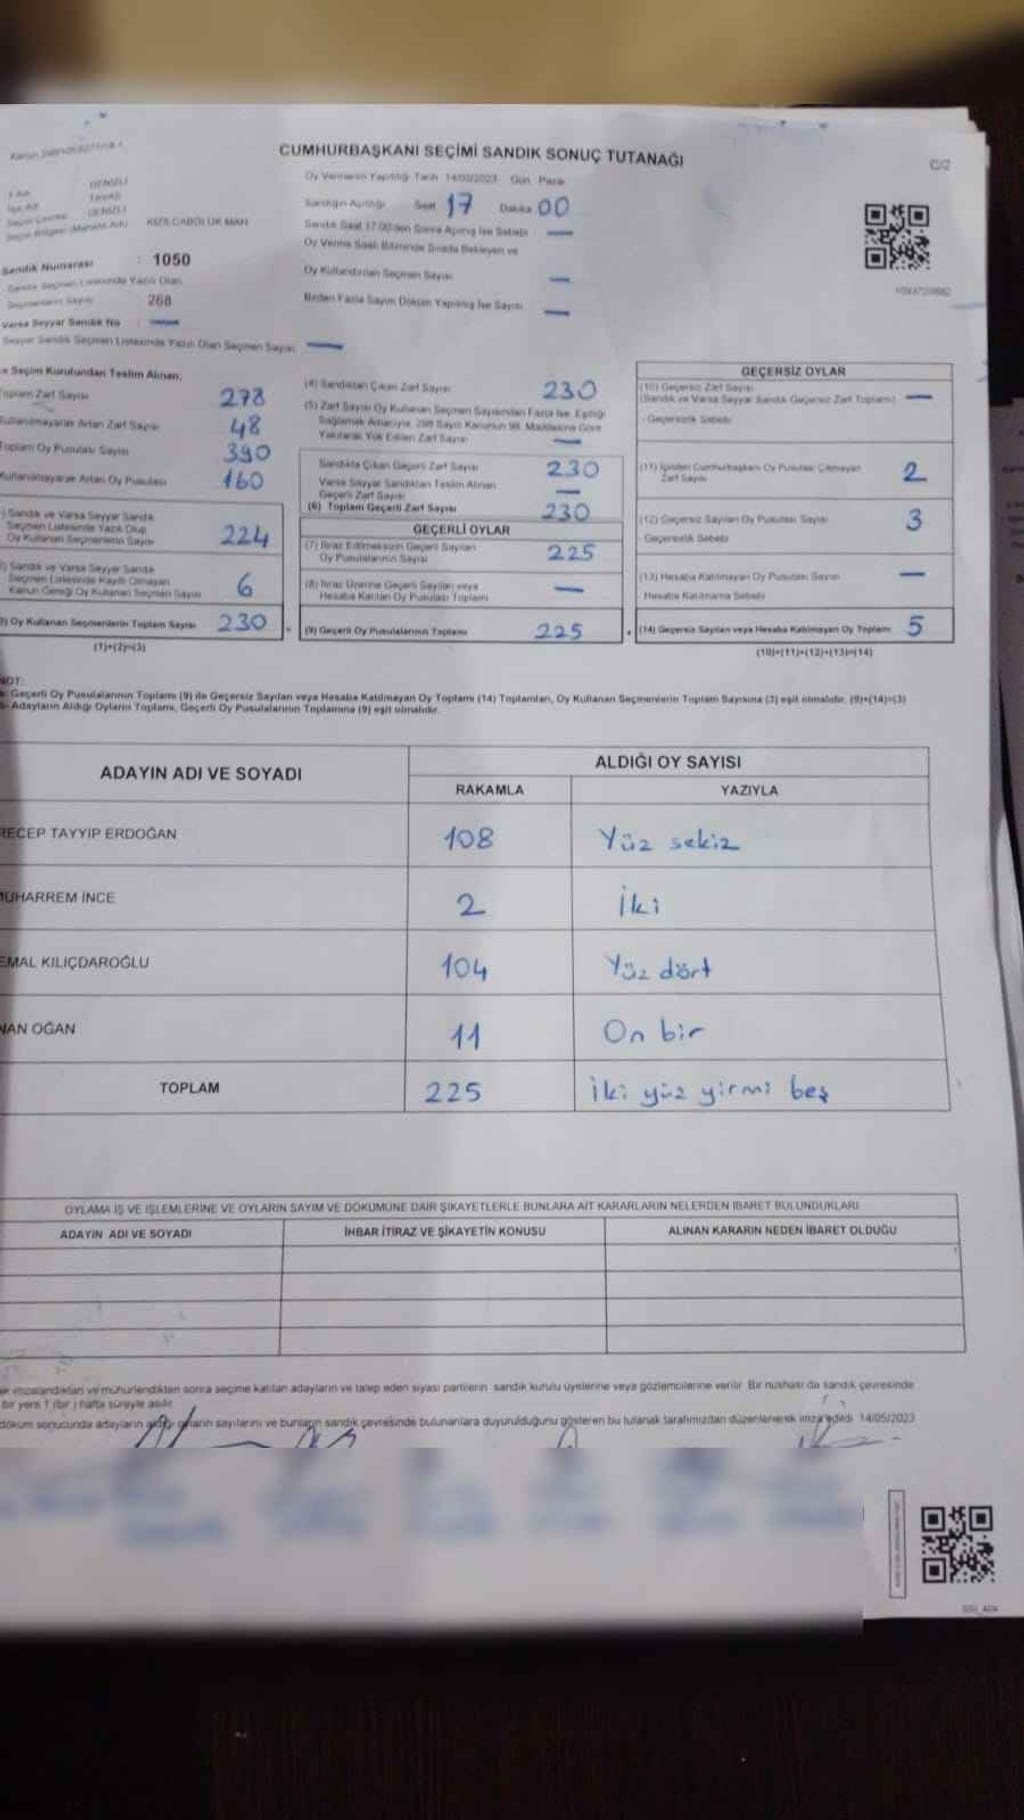 CUMHURBAŞKANI SEÇİMİ SANDIK SONUÇ TUTANAĞI
C/2
Oy Vermenin Yapıldığı Tarih 14/05/2023 Gün Pazar
Sandığın Açıldığı Saat 17 Dakika 00
Sandık Saat 17.00'den Sonra Açılmış İse Sebebi —
Oy Verme Saati Bitiminde Sırada Bekleyen ve
Oy Kullandırılan Seçmen Sayısı —
Birden Fazla Sayım Döküm Yapılmış İse Sayısı —
DENİZLİ
TAVAS
DENİZLİ
KIZILCABÖLÜK MAH
Sandık Numarası : 1050
Sandık Seçmen Listesinde Yazılı Olan
Seçmenlerin Sayısı 268
Varsa Seyyar Sandık No : —
Seyyar Sandık Seçmen Listesinde Yazılı Olan Seçmen Sayısı —
Seçim Kurulundan Teslim Alınan;
Toplam Zarf Sayısı 278
Kullanılmayarak Artan Zarf Sayısı 48
Toplam Oy Pusulası Sayısı 390
Kullanılmayarak Artan Oy Pusulası 160
Sandık ve Varsa Seyyar Sandık
Seçmen Listesinde Yazılı Olup
Oy Kullanan Seçmenlerin Sayısı 224
Sandık ve Varsa Seyyar Sandık
Seçmen Listesinde Kayıtlı Olmayan
Kanun Gereği Oy Kullanan Seçmen Sayısı 6
Oy Kullanan Seçmenlerin Toplam Sayısı 230
(1)+(2)=(3)
(4) Sandıktan Çıkan Zarf Sayısı 230
(5) Zarf Sayısı Oy Kullanan Seçmen Sayısından Fazla İse, Eşitliği
Sağlamak Amacıyla, 298 Sayılı Kanunun 98. Maddesine Göre
Yakılarak Yok Edilen Zarf Sayısı —
Sandıkta Çıkan Geçerli Zarf Sayısı 230
Varsa Seyyar Sandıktan Teslim Alınan
Geçerli Zarf Sayısı —
(6) Toplam Geçerli Zarf Sayısı 230
GEÇERLİ OYLAR
(7) İtiraz Edilmeksizin Geçerli Sayılan
Oy Pusulalarının Sayısı 225
(8) İtiraz Üzerine Geçerli Sayılan veya
Hesaba Katılan Oy Pusulası Toplamı —
(9) Geçerli Oy Pusulalarının Toplamı 225
GEÇERSİZ OYLAR
(10) Geçersiz Zarf Sayısı
(Sandık ve Varsa Seyyar Sandık Geçersiz Zarf Toplamı) —
Geçersizlik Sebebi
(11) İçinden Cumhurbaşkanı Oy Pusulası Çıkmayan
Zarf Sayısı 2
(12) Geçersiz Sayılan Oy Pusulası Sayısı 3
Geçersizlik Sebebi
(13) Hesaba Katılmayan Oy Pusulası Sayısı —
Hesaba Katılmama Sebebi
(14) Geçersiz Sayılan veya Hesaba Katılmayan Oy Toplamı 5
(10)+(11)+(12)+(13)=(14)
NOT:
Geçerli Oy Pusulalarının Toplamı (9) ile Geçersiz Sayılan veya Hesaba Katılmayan Oy Toplamı (14) Toplamları, Oy Kullanan Seçmenlerin Toplam Sayısına (3) eşit olmalıdır. (9)+(14)=(3)
Adayların Aldığı Oyların Toplamı, Geçerli Oy Pusulalarının Toplamına (9) eşit olmalıdır.
ADAYIN ADI VE SOYADI
ALDIĞI OY SAYISI
RAKAMLA YAZIYLA
RECEP TAYYİP ERDOĞAN 108 Yüz sekiz
MUHARREM İNCE 2 İki
EMAL KILIÇDAROĞLU 104 Yüz dört
NAN OĞAN 11 On bir
TOPLAM 225 İki yüz yirmi beş
OYLAMA İŞ VE İŞLEMLERİNE VE OYLARIN SAYIM VE DÖKÜMÜNE DAİR ŞİKAYETLERLE BUNLARA AİT KARARLARIN NELERDEN İBARET BULUNDUKLARI
ADAYIN ADI VE SOYADI İHBAR İTİRAZ VE ŞİKAYETİN KONUSU ALINAN KARARIN NEDEN İBARET OLDUĞU
imzalandıktan ve mühürlendikten sonra seçime katılan adayların ve talep eden siyasi partilerin sandık kurulu üyelerine veya gözlemcilerine verilir. Bir nüshası da sandık çevresinde
bir yere 1 (bir) hafta süreyle asılır.
döküm sonucunda adayların aldığı oyların sayılarını ve bunların sandık çevresinde bulunanlara duyurulduğunu gösteren bu tutanak tarafımızdan düzenlenerek imza edildi. 14/05/2023